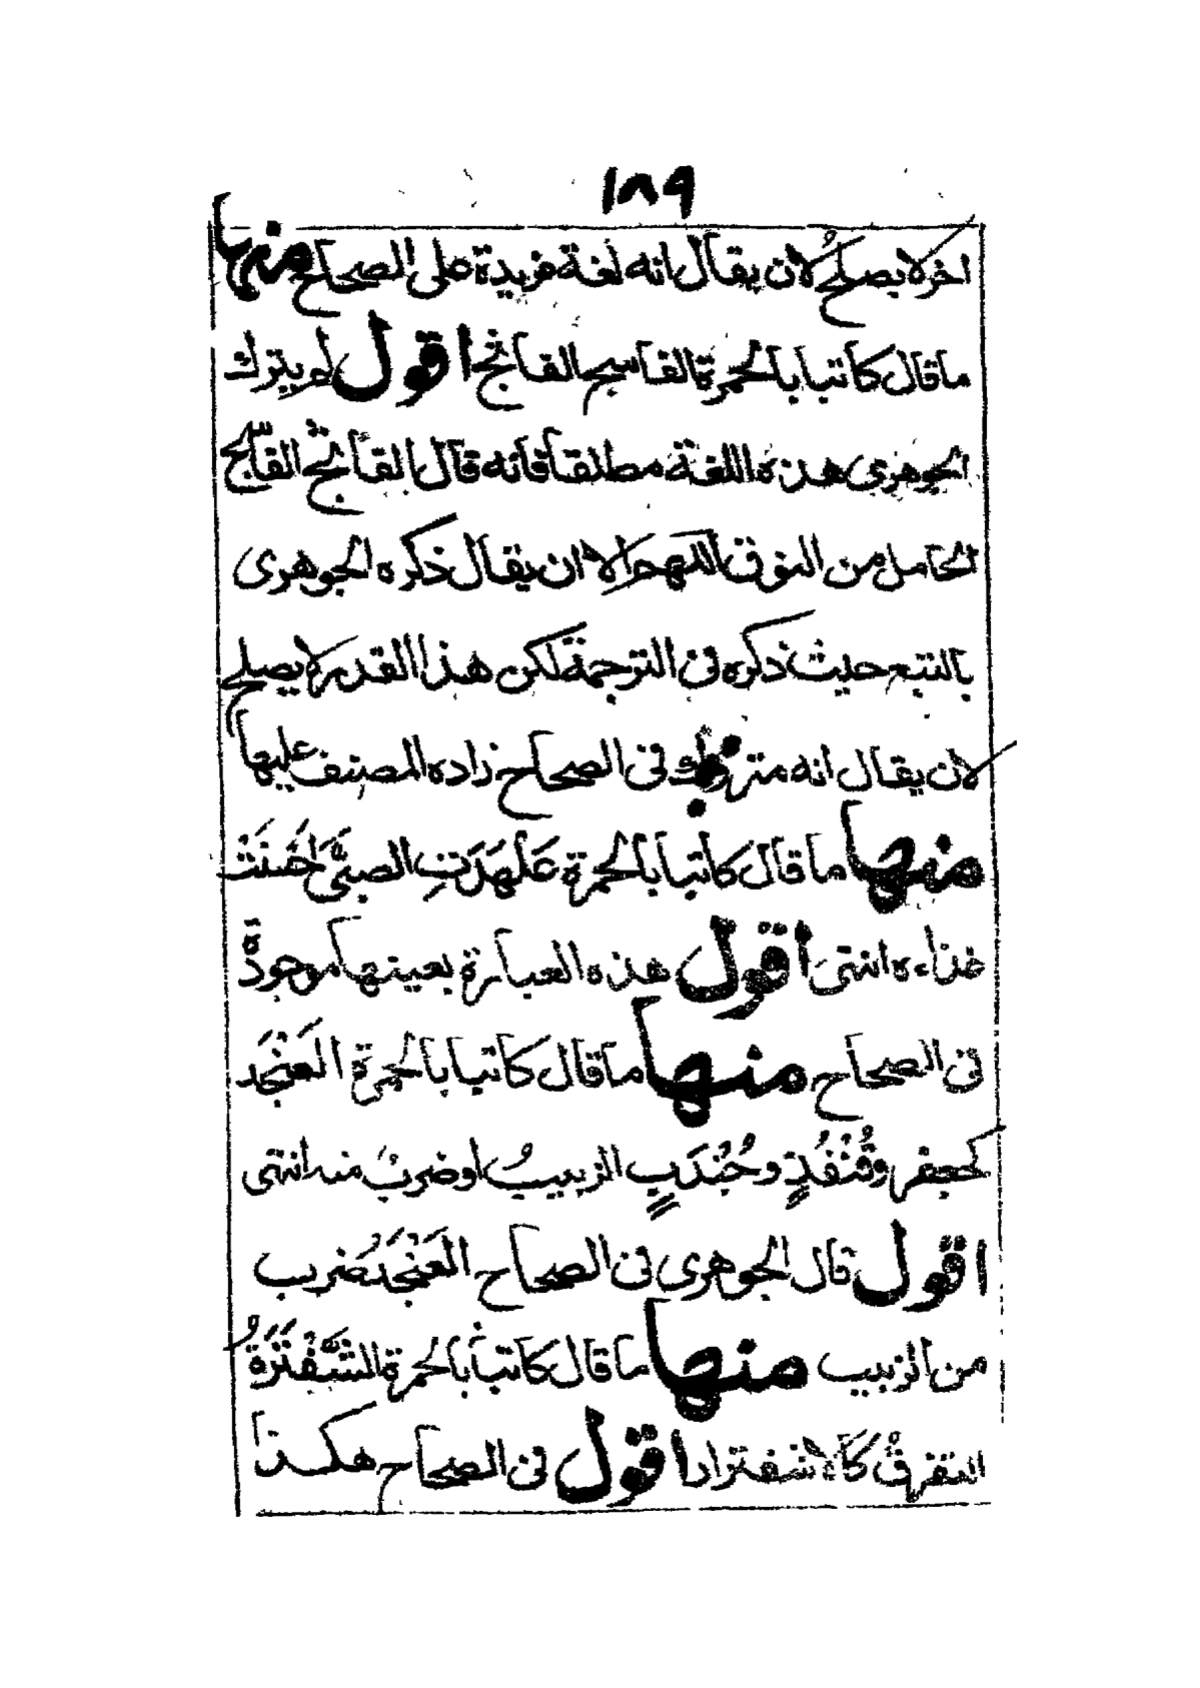 ١٨٩
اخر لا يصلح لان يقال انه لغة مزيدة على الصحاح منها
ما قال كاتبا بالحمرة القاسح القاثح اقول لم يترك
الجوهرى هذه اللغة مطلقا فانه قال
الحامل من النوق الا ان يقال ذكره الجوهرى
بالتتبع حيث ذكره فى الترجمة لكن هذا القدر لا يصلح
لان يقال انه متروك فى الصحاح زاده المصنف عليها
منها ما قال كاتبا بالحمرة عَلْهَدَتِ الصبىَّ اَحْسَنَتْ
غذاءه انتهى اقول هذه العبارة بعينها موجودةٌ
فى الصحاح منها ما قال كاتبا بالحمرة العَنْجَد
كجعفر وقُنْفُذٍ وجُنْدَبٍ الزبيبُ او ضربٌ منه انتهى
اقول قال الجوهرى فى الصحاح العَنْجَدُ ضرب
من الزبيب منها ما قال كاتبا بالحمرة الشَّفْتَرَةُ
التفرقُ كالاشفترار اقول فى الصحاح هكذا